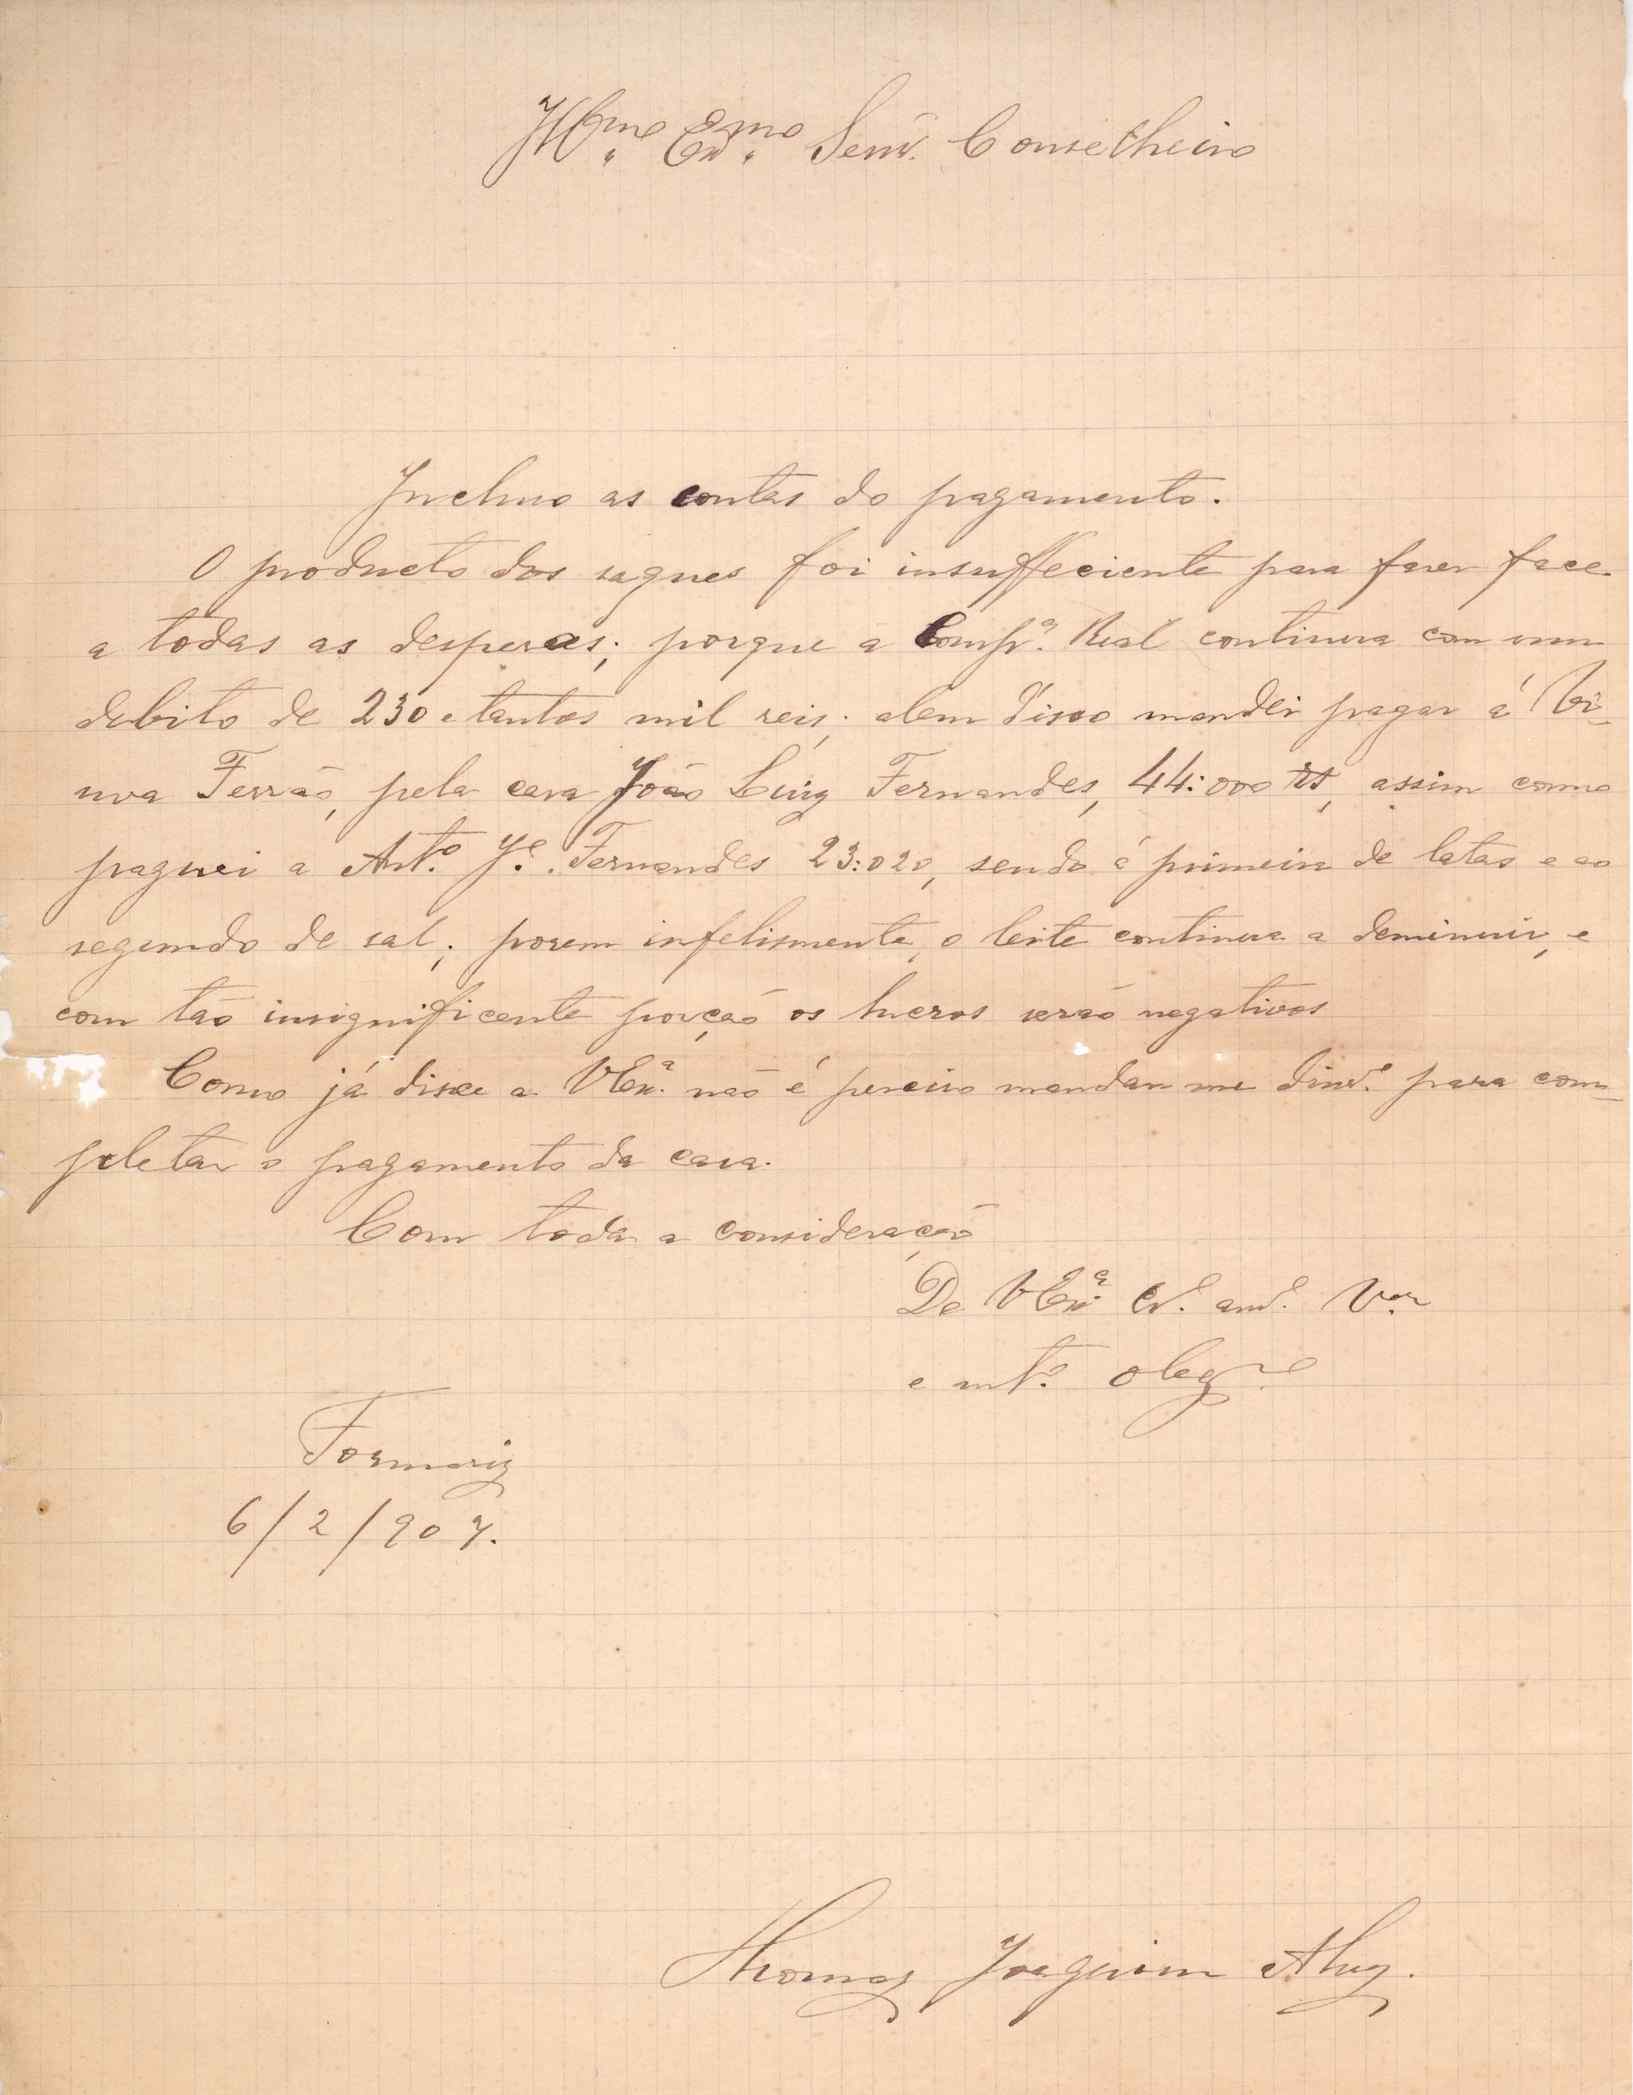 Illmo Exmo Senr. Conselheiro
Incluso as contas do pagamento.
O producto dos saques foi insuffeciente para fazer face
a todas as despezas; porque a Compª. Real continua com um
debito de 230 e tantos mil reis; alem d'isso mandei pagar á Vi-
uva Ferrão, pela casa João Luiz Fernandes, 44:000 rs, assim como
paguei a Antº. Jé. Fernandes 23:020, sendo á primeira de latas e ao
segundo de sal; porem infelismente, o leite continua a deminuir, e
com tão insignificante porção os lucros serão negativos
Como já disse a VExª. não é perciso mandar me dinrº. para com-
pletar o pagamento da casa.
Com toda a consideração
De VExª Cr. amº. Vor
e mtº. obrgdo
Formariz
6/2/907.
Thomaz Joaquim Alvz.